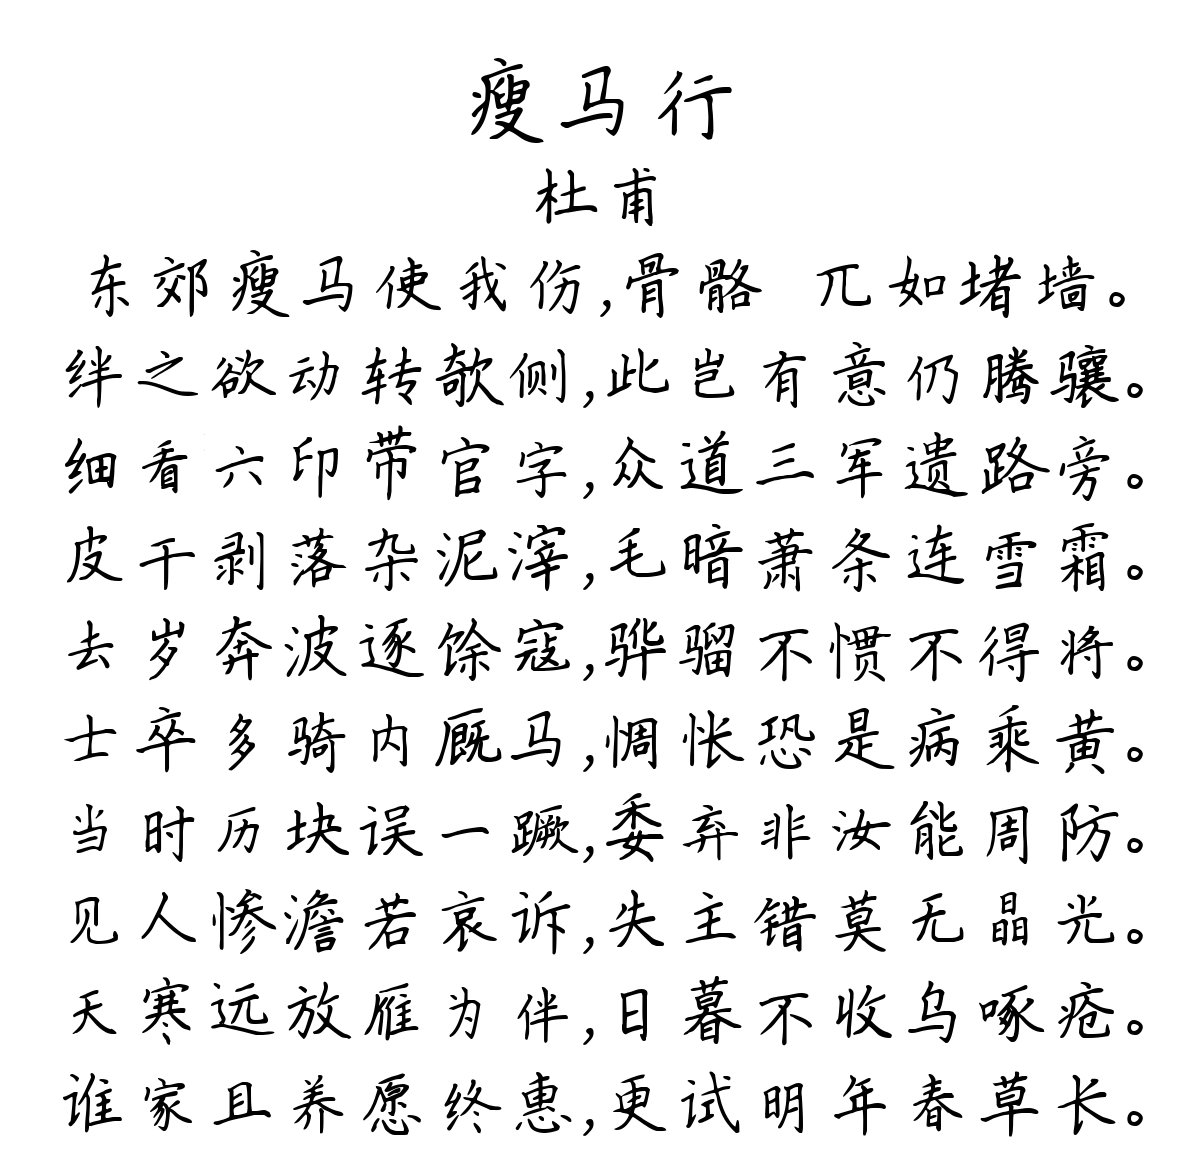 瘦马行
杜甫
东郊瘦马使我伤,骨骼 兀如堵墙。
绊之欲动转欹侧,此岂有意仍腾骧。
细看六印带官字,众道三军遗路旁。
皮干剥落杂泥滓,毛暗萧条连雪霜。
去岁奔波逐馀寇,骅骝不惯不得将。
士卒多骑内厩马,惆怅恐是病乘黄。
当时历块误一蹶,委弃非汝能周防。
见人惨澹若哀诉,失主错莫无晶光。
天寒远放雁为伴,日暮不收乌啄疮。
谁家且养愿终惠,更试明年春草长。